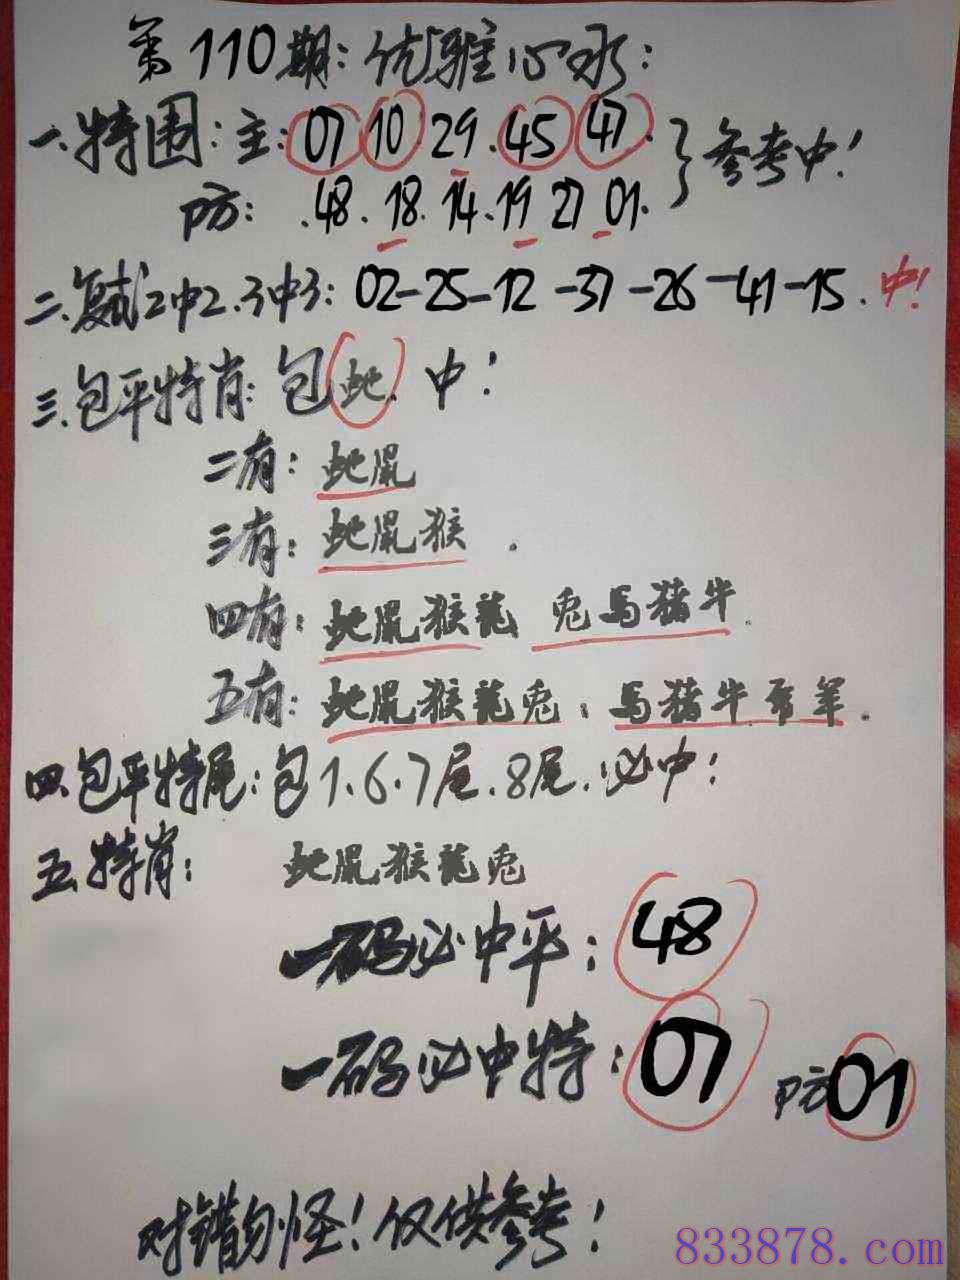 第110期:优雅心水:
一.特围:主:07 10 29.45 47.}参考中!
防:.48.18.14.19 27 01.
二.复试2中2.3中3:02-25-12-37-26-41-15.中!
三.包平特肖:包蛇.中!
二有:蛇鼠
三有:蛇鼠猴.
四有:蛇鼠猴龍 兔马猪牛.
五有:蛇鼠猴龍兔:马猪牛 羊.
四.包平特尾:包1.6.7尾.8尾.必中!
五.特肖: 蛇鼠猴龍兔
一码必中平:48
一码必中特:07 防01
对错勿怪!仅供参考!
833878.com